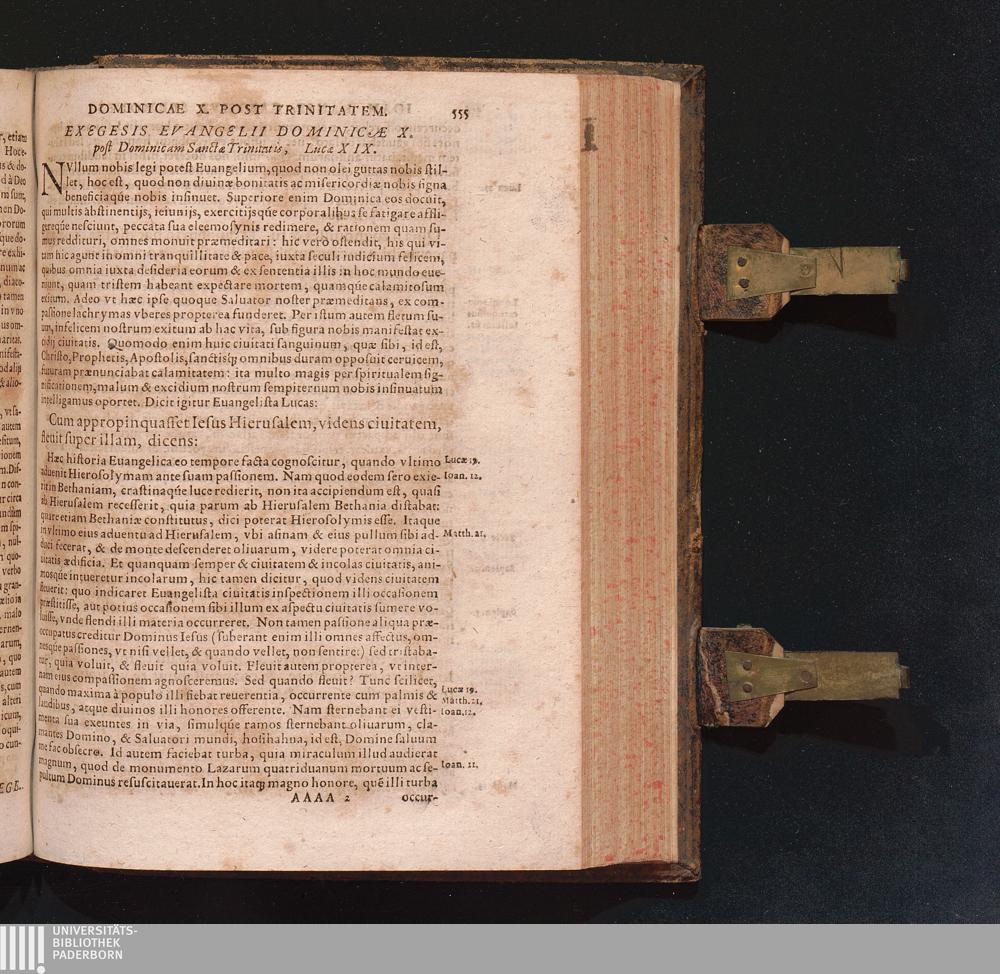 DOMINICAE X. POST TRINITATEM. 555
EXEGESIS EVANGELII DOMINICÆ X.
post Dominicam Sanctæ Trinitatis, Lucæ XIX.
NVllum nobis legi potest Euangelium, quod non olei guttas nobis stil-
let, hoc est, quod non diuinæ bonitatis ac misericordiæ nobis signa
beneficiaq́ue nobis insinuet. Superiore enim Dominica eos docuit,
qui multis abstinentijs, ieiunijs, exercitijsq́ue corporalibus se fatigare affli-
gereq́ue nesciunt, peccata sua eleemosynis redimere, & rationem quam su-
mus reddituri, omnes monuit præmeditari: hic verò ostendit, his qui vi-
tam hic agunt in omni tranquillitate & pace, iuxta seculi iudicium felicem,
quibus omnia iuxta desideria eorum & ex sententia illis in hoc mundo eue-
niunt, quam tristem habeant expectare mortem, quamq́ue calamitosum
exitum. Adeo vt hæc ipse quoque Saluator noster præmeditans, ex com-
passione lachrymas vberes propterea funderet. Per istum autem fletum su-
um, infelicem nostrum exitum ab hac vita, sub figura nobis manifestat ex-
cidij ciuitatis. Quomodo enim huic ciuitati sanguinum, quæ sibi, id est,
Christo, Prophetis, Apostolis, sanctisq́; omnibus duram opposuit ceruicem,
futuram prænunciabat calamitatem: ita multo magis per spiritualem sig-
nificationem, malum & excidium nostrum sempiternum nobis insinuatum
intelligamus oportet. Dicit igitur Euangelista Lucas:
Cum appropinquasset Iesus Hierusalem, videns ciuitatem,
fleuit super illam, dicens:
Hæc historia Euangelica eo tempore facta cognoscitur, quando vltimo Lucæ 19.
aduenit Hierosolymam ante suam passionem. Nam quod eodem sero exie- Ioan. 12.
rit in Bethaniam, crastinaq́ue luce redierit, non ita accipiendum est, quasi
ab Hierusalem recesserit, quia parum ab Hierusalem Bethania distabat:
quare etiam Bethaniæ constitutus, dici poterat Hierosolymis esse. Itaque
in vltimo eius aduentu ad Hierusalem, vbi asinam & eius pullum sibi ad- Matth. 21.
duci fecerat, & de monte descenderet oliuarum, videre poterat omnia ci-
uitatis ædificia. Et quanquam semper & ciuitatem & incolas ciuitatis, ani-
mosq́ue intueretur incolarum, hic tamen dicitur, quod videns ciuitatem
fleuerit: quo indicaret Euangelista ciuitatis inspectionem illi occasionem
præstitisse, aut potius occasionem sibi illum ex aspectu ciuitatis sumere vo-
luisse, vnde flendi illi materia occurreret. Non tamen passione aliqua præ-
occupatus creditur Dominus Iesus (suberant enim illi omnes affectus, om-
nesq́ue passiones, vt nisi vellet, & quando vellet, non sentiret) sed tristaba-
tur, quia voluit, & fleuit quia voluit. Fleuit autem propterea, vt inter-
nam eius compassionem agnosceremus. Sed quando fleuit? Tunc scilicet,
quando maxima à populo illi fiebat reuerentia, occurrente cum palmis & Lucæ 19.
laudibus, atque diuinos illi honores offerente. Nam sternebant ei vesti- Matth. 21.
menta sua exeuntes in via, simulq́ue ramos sternebant oliuarum, cla- Ioan. 12.
mantes Domino, & Saluatori mundi, hosihahna, id est, Domine saluum
me fac obsecro. Id autem faciebat turba, quia miraculum illud audierat
magnum, quod de monumento Lazarum quatriduanum mortuum ac se- Ioan. 11.
pultum Dominus resuscitauerat. In hoc itaq́; magno honore, quē illi turba
AAAA 2 occur-
UNIVERSITÄTS-
BIBLIOTHEK
PADERBORN